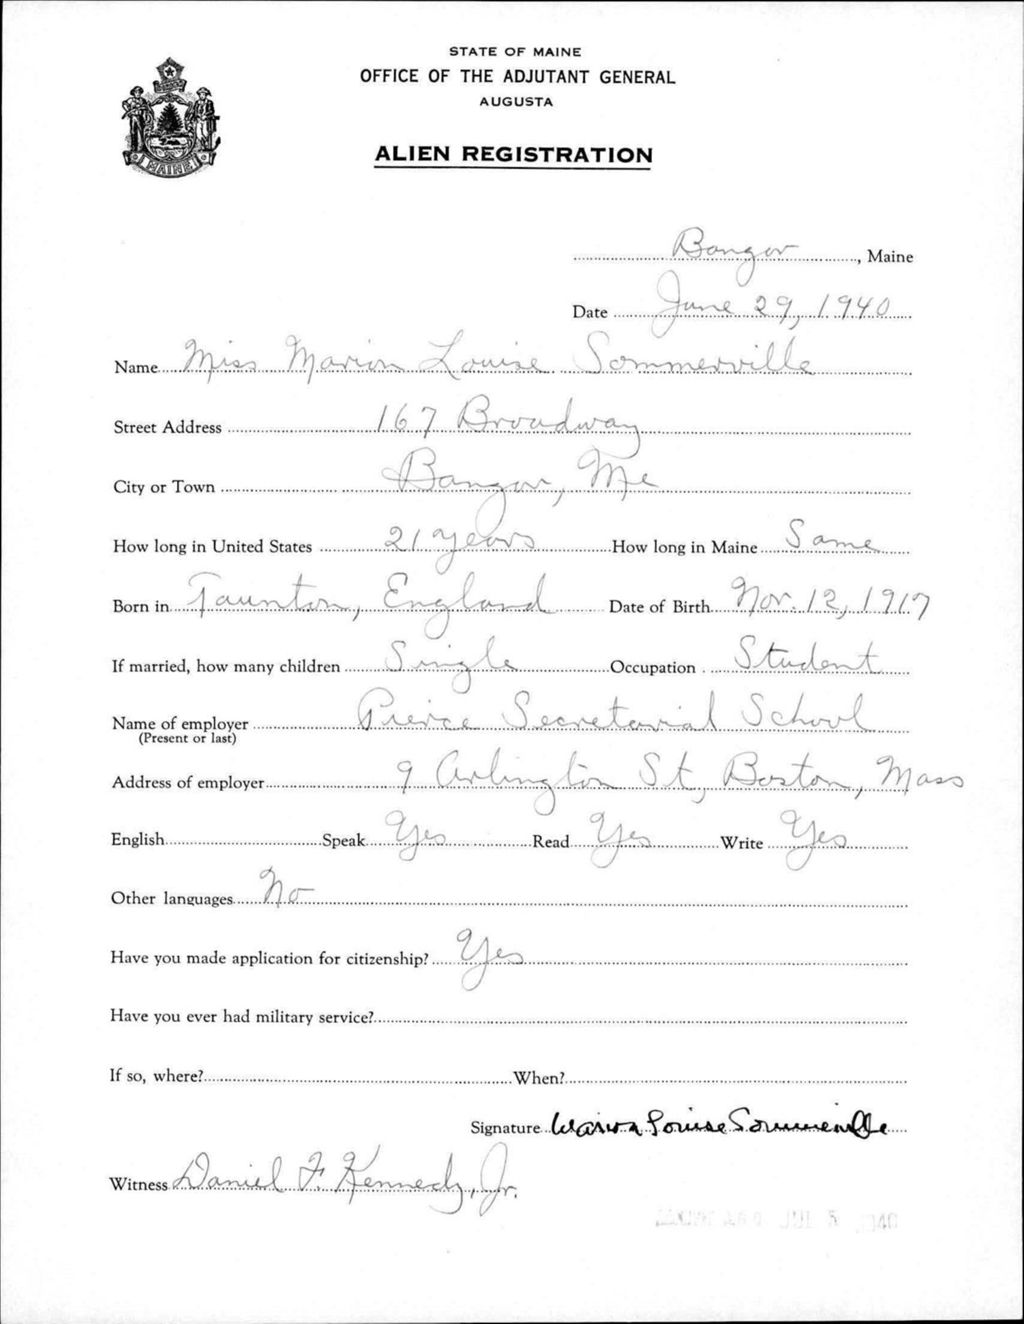 STATE OF MAINE
OFFICE OF THE ADJUTANT GENERAL
AUGUSTA
ALIEN REGISTRATION
MAINE
Bangor, Maine
Date June 29, 1940
Name Miss Marion Louise Sommerville
Street Address 167 Broadway
City or Town Bangor, Me
How long in United States 21 years How long in Maine Same
Born in Taunton, England Date of Birth Nov. 12, 1917
If married, how many children Single Occupation Student
Name of employer Pierce Secretarial School
(Present or last)
Address of employer 9 Arlington St, Boston, Mass
English Speak Yes Read Yes Write Yes
Other languages No
Have you made application for citizenship? Yes
Have you ever had military service?
If so, where? When?
Signature Marion Louise Sommerville
Witness Daniel F. Kennedy, Jr.
JUL 5 1940